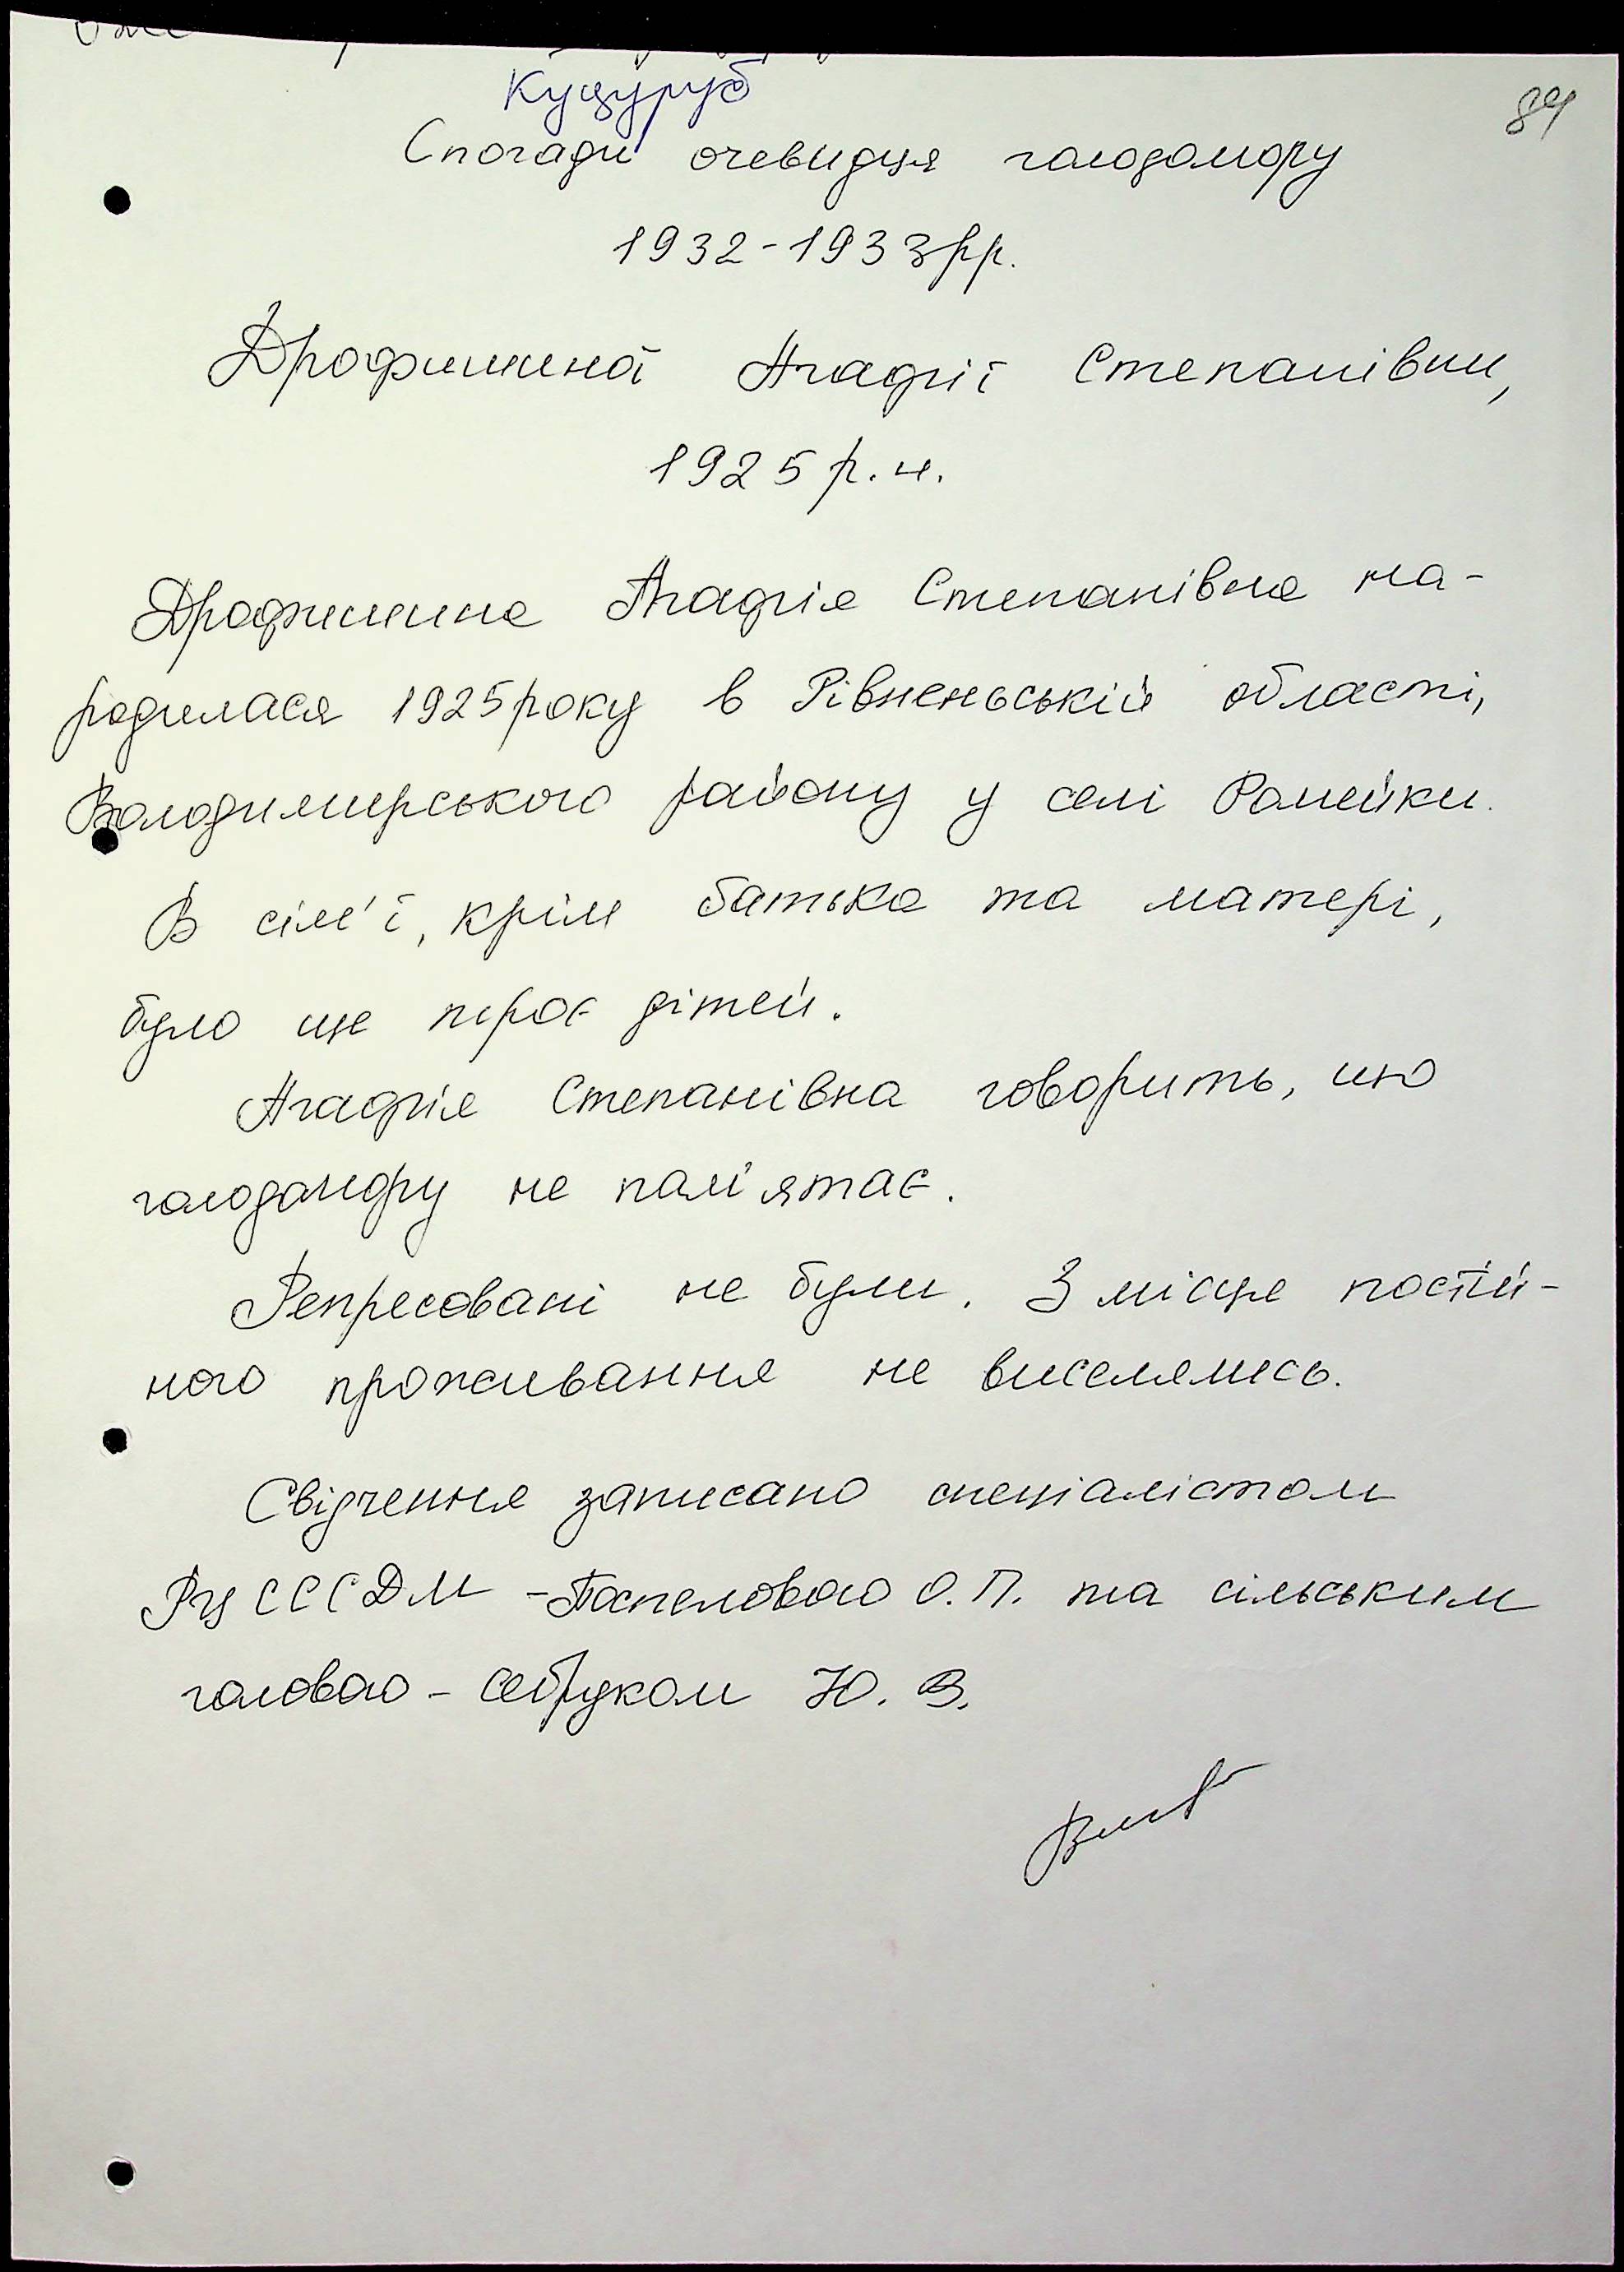 Куцуруб
84
Спогади очевидця голодомору
1932-1933рр.
Дрофишиної Агафії Степанівни,
1925 р.н.
Дрофишина Агафія Степанівна на-
родилася 1925року в Рівненьській області,
Володимирського району у селі Ромейки.
В сім'ї, крім батька та матері,
було ще троє дітей.
Агафія Степанівна говорить, що
голодомору не пам'ятає.
Репресовані не були. З місця постій-
ного проживання не виселялись.
Свідчення записано спеціалістом
РЦ СССДМ - Поспеловою О.П. та сільським
головою - Себруком Ю. В.